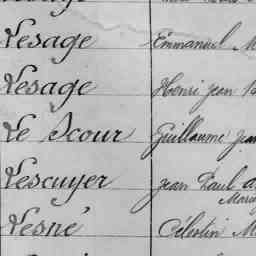 Lesage Emmanuel M
Lesage Henri Jean
Le Scour Guillaume Jean
Lescuyer Jean Paul A
Marie
Lesné Célestin M